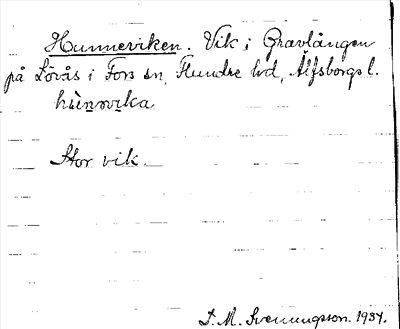 Hunneviken. Vik i Gravlången
på Lövås i Fors sn, Flundre hd, Älfsborgs l.
hùnovika
Stor vik.
S. M. Svenungsson. 1934.